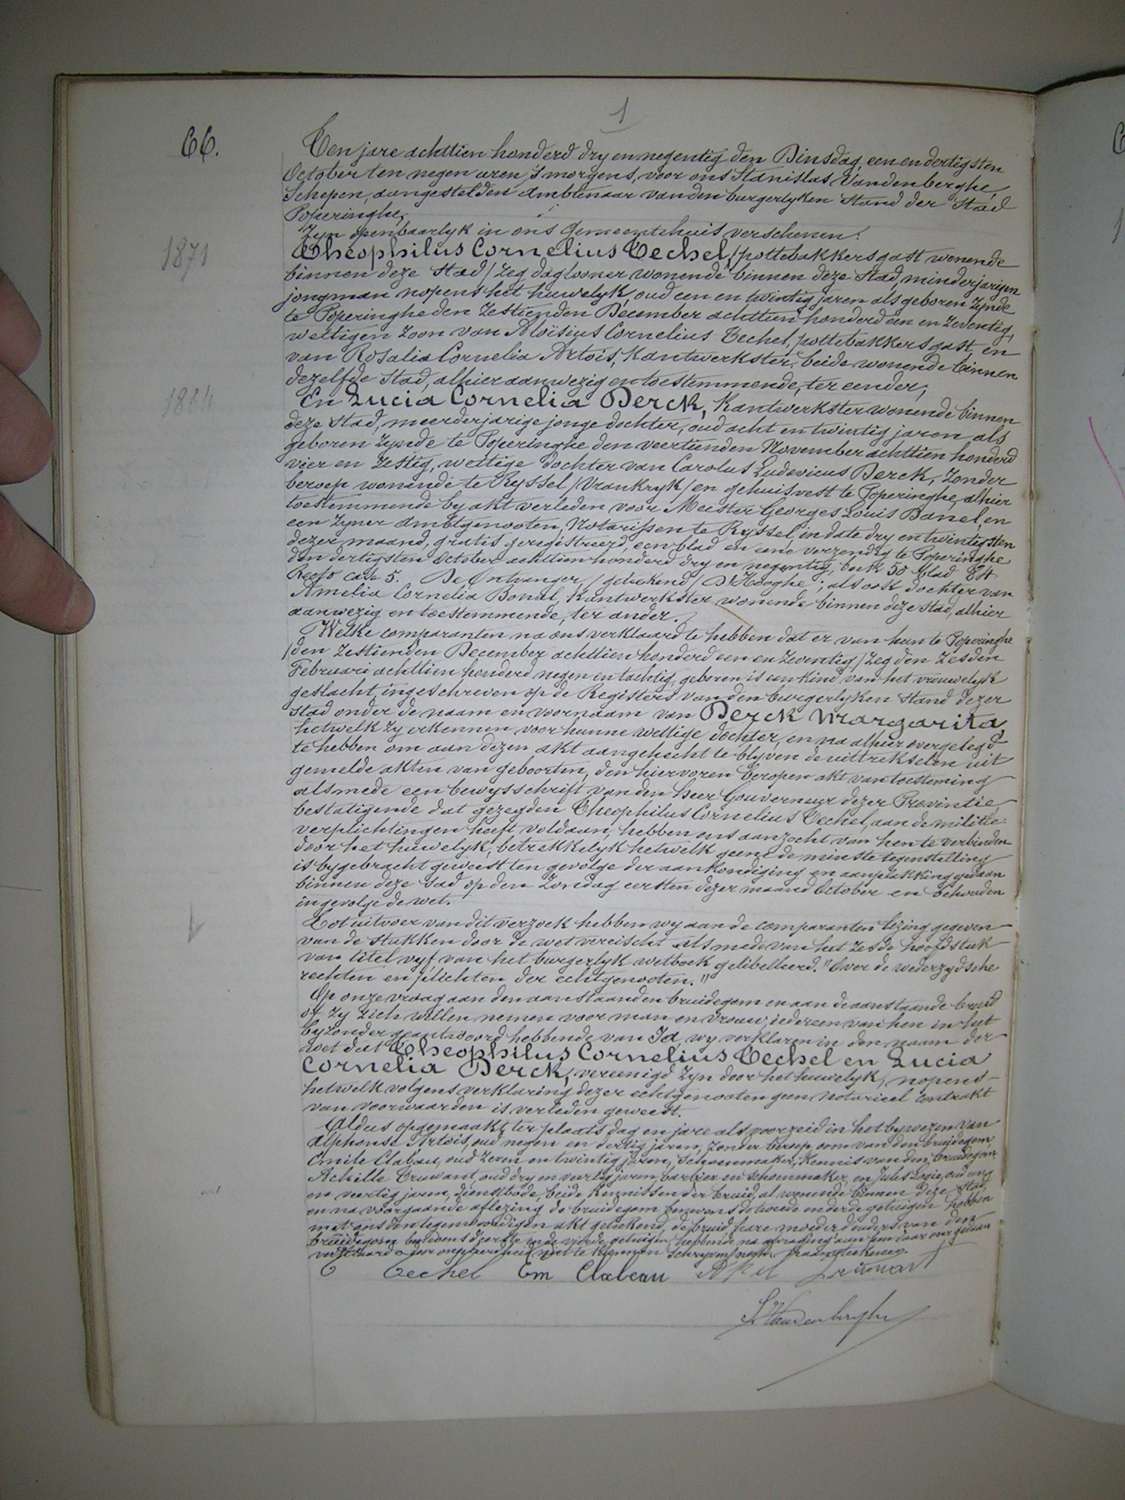 1
66.
Ten jare achttien honderd dry en negentig den Dinsdag, een en dertigsten
October ten negen uren 's morgens, voor ons Stanislas Vandenberghe,
Schepen, aangestelden Ambtenaar van den burgerlyken Stand der Stad
Poperinghe,
Zyn openbaarlyk in ons Gemeentehuis verschenen:
1871
Theophilus Cornelius Techel, /pottebakkersgast wonende
binnen deze Stad/ zeg daglooner wonende binnen deze Stad, minderjarigen
jongman nopens het huwelyk, oud een en twintig jaren als geboren zynde
te Poperinghe den zestienden December achttien honderd een en zeventig,
wettigen zoon van Aloïsius Cornelius Techel, pottebakkersgast en
van Rosalia Cornelia Artois, Kantwerkster, beide wonende binnen
dezelfde Stad, alhier aanwezig en toestemmende, ter eender,
1864
En Lucia Cornelia Derck, Kantwerkster wonende binnen
deze Stad, meerderjarige jonge dochter, oud acht en twintig jaren, als
geboren zynde te Poperinghe den veertienden November achttien honderd
vier en zestig, wettige dochter van Carolus Ludovicus Derck, zonder
beroep wonende te Ryssel /Vrankryk/ en gehuisvest te Poperinghe, alhier
toestemmende by akt verleden voor Meester Georges Louis Danel, en
een zyner Ambtgenooten, Notarissen te Ryssel, in date dry en twintigsten
dezer maand, gratis geregistreerd, een blad en eene verzending te Poperinghe
den dertigsten October achttien honderd dry en negentig, boek 50 blad 84
Recto case 5. De Ontvanger, /getekend/ D'Hooghe; alsook dochter van
Amelia Cornelia Bonut, Kantwerkster wonende binnen deze Stad, alhier
aanwezig en toestemmende, ter ander.
Welke comparanten na ons verklaard te hebben dat er van hun te Poperinghe
/den zestienden December achttien honderd een en zeventig/ zeg den zesden
Februari achttien honderd negen en tachtig, geboren is een kind van het vrouwelyk
geslacht, ingeschreven op de Registers van den burgerlyken Stand dezer
Stad onder de naam en voornaam van Derck Margarita,
hetwelk zy erkennen voor hunne wettige dochter, en na alhier overgelegd
te hebben om aan dezen akt aangehecht te blyven de uittrekselen uit
gemelde akten van geboorten, den hiervoren beropen akt van toesteming
alsmede een bewysschrift van den heer Gouverneur dezer Provintie
bestatigende dat gezegden Theophilus Cornelius Techel, aan de militie
verplichtingen heeft voldaan, hebben ons aanzocht van hen te verbinden
door het huwelyk, betrekkelyk hetwelk geene de minste tegenstelling
is bygebracht geweest ten gevolge der aankondiging en aanplakking gedaan
binnen deze Stad op den Zondag eersten dezer maand October en behouden
ingevolge de wet.
Tot uitvoer van dit verzoek hebben wy aan de comparanten lezing gegeven
van de stukken door de wet vereischt alsmede van het zesde hoofdstuk
van titel vyf van het burgerlyk wetboek gelibelleerd. "Over de wederzydsche
rechten en plichten der echtgenooten."
Op onze vraag aan den aanstaanden bruidegom en aan de aanstaande bruid
of zy zich willen nemen voor man en vrouw, iedereen van hen in het
byzonder geantwoord hebbende van Ja, wy verklaren in den naam der
wet dat Theophilus Cornelius Techel en Lucia
Cornelia Derck, vereenigd zyn door het huwelyk, nopens
hetwelk volgens verklaring dezer echtgenooten geen notarieel contrakt
van voorwaarden is verleden geweest.
Aldus opgemaakt ter plaats dag en jare als voorzeid in het bywezen van
Alphonse Artois, oud negen en dertig jaren, zonder beroep oom van den bruidegom
Emile Clabau, oud zeven en twintig jaren, Schoenmaker, Kennis van den bruidegom
Achille Cruwant, oud dry en veertig jaren, barbier en Schoenmaker, en Jules Logie, oud een
en veertig jaren, dienstbode, beide Kennissen der bruid, al wonende binnen deze Stad,
en na voorgaande aflezing de bruidegom benevens de tweede en derde getuigen hebben
met ons den tegenwoordigen akt geteekend, de bruid hare moeder de ouders van den
bruidegom
Techel Em Clabeau
S Vandenberghe